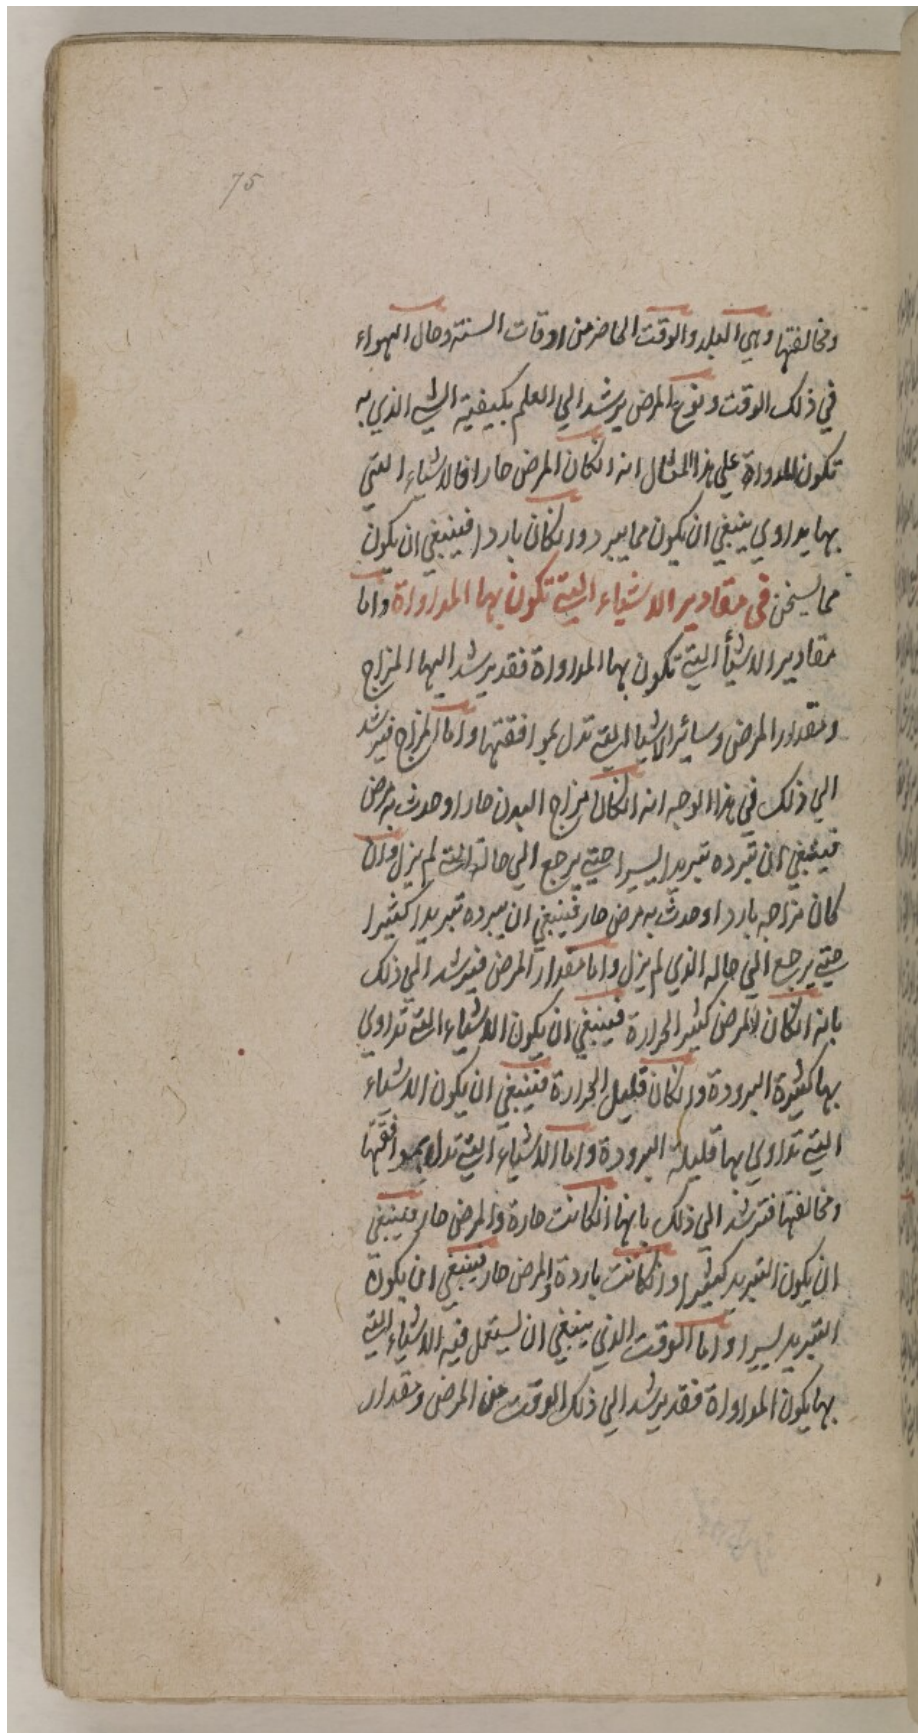 75
ومخالفتها وهي البلد والوقت الحاضر من اوقات السنة وحال الهواء
في ذلك الوقت ونوع المرض يرشد الي العلم بكيفية الشي الذي به
تكون المداواة علي هذا المثال انه انكان المرض حارا فالاشياء التي
بها يداوي ينبغي ان يكون مما يبرد وانكان باردا فينبغي ان يكون
مما يسخن في مقادير الاشياء التي تكون بها المداواة واما
مقادير الاشيأ التي تكون بها المداواة فقد يرشد اليها المزاج
ومقدار المرض وسائر الاشيا التي تدل بموافقتها واما المزاج فيرشد
الي ذلك في هذا الوجه انه انكان مزاج البدن حارا وحدث به مرض
فينبغي ان تبرده تبريدا يسيرا حتي يرجع الي حالة التي لم يزل وان
كان مزاجه باردا وحدث به مرض حار فينبغي ان يبرده تبريدا كثيرا
حتي يرجع الي حاله الذي لم يزل واما مقدار المرض فيرشد الي ذلك
بانه انكان المرض كثير الحرارة فينبغي ان يكون الاشياء التي تداوي
بها كثيرة البرودة وانكان قليل الحرارة فينبغي ان يكون الاشياء
التي تداوي بها قليلة البرودة واما الاشياء التي تدل بموافقتها
ومخالفتها فترشد الي ذلك بانها انكانت حارة والمرض حار فينبغي
ان يكون التبريد كثيرا وانكانت باردة والمرض حار فينبغي ان يكون
التبريد يسيرا واما الوقت الذي ينبغي ان يستعمل فيه الاشياء التي
بها يكون المداواة فقد يرشد الي ذلك الوقت من المرض ومقدار